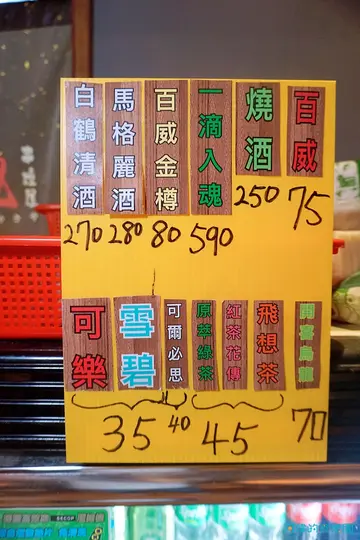 白鶴清酒
馬格麗酒
百威金樽
一滴入魂
燒酒
百威
270
280
80
590
250
75
可樂
雪碧
可爾必思
原萃綠茶
紅茶花傳
飛想茶
開喜烏龍
35
40
45
70